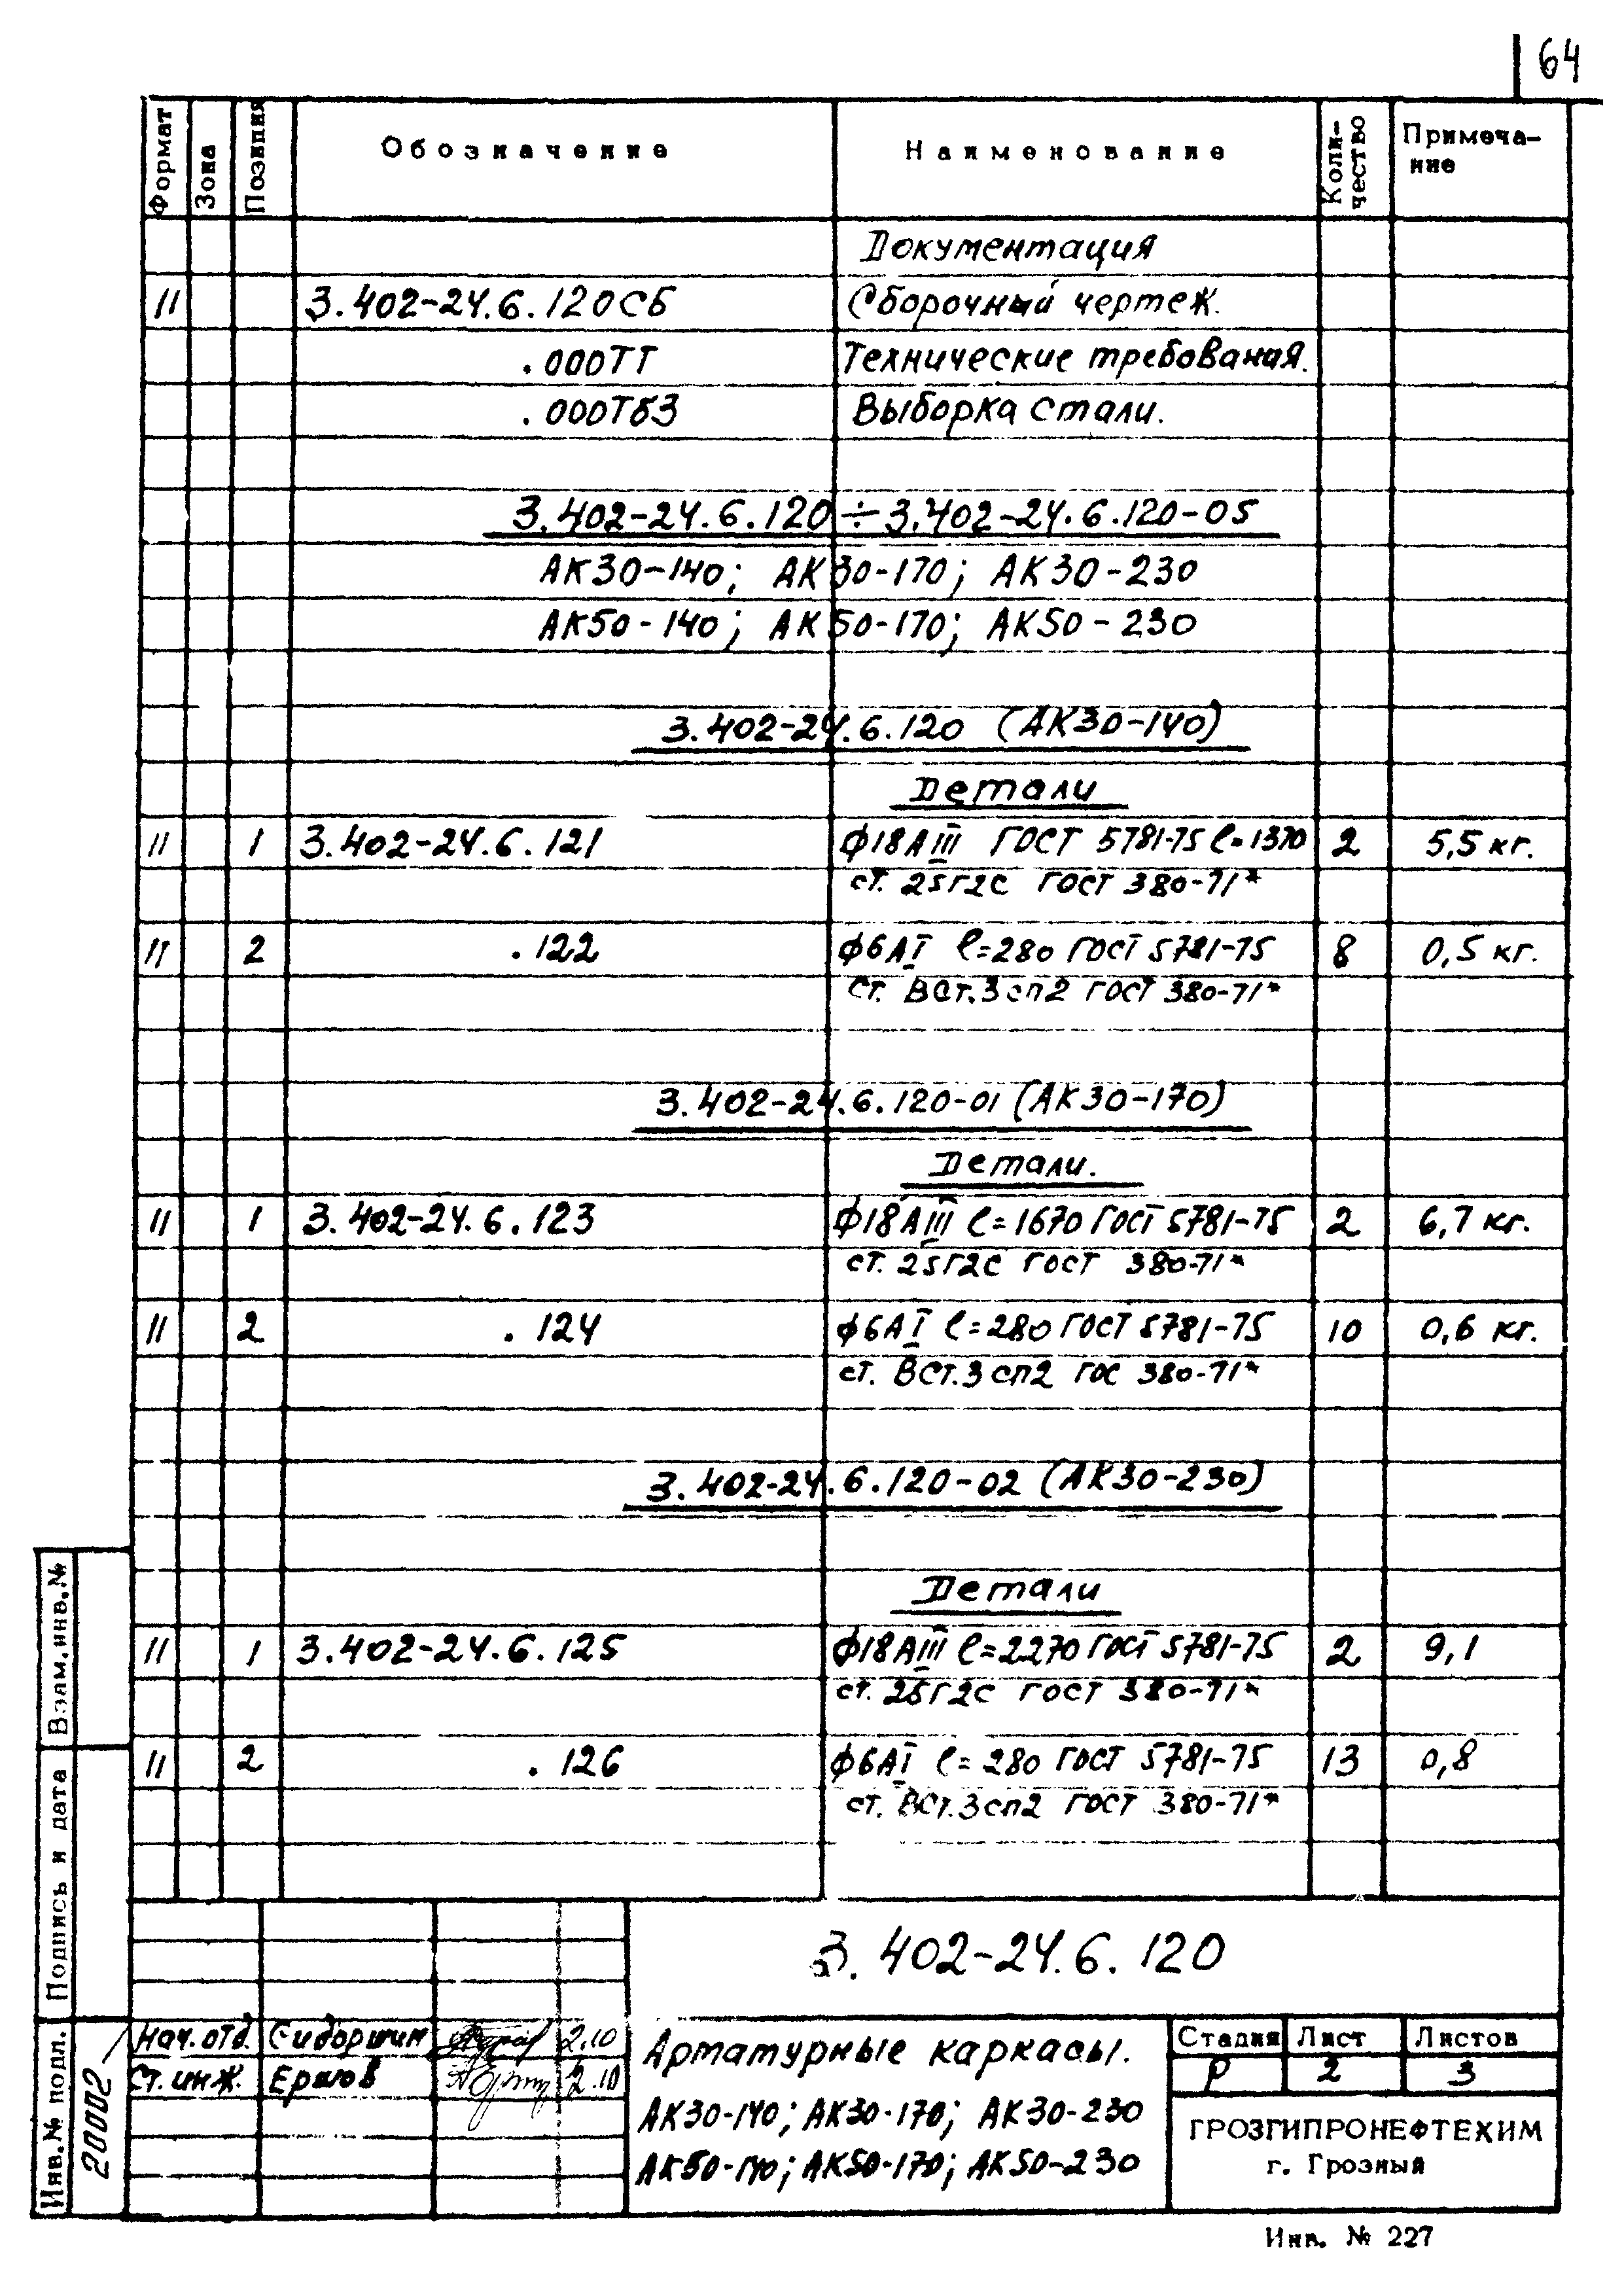 64
Формат Зона Позиция Обозначение Наименование Коли-чество Примеча-ние
Документация
11 3.402-24.6.120СБ Сборочный чертеж.
.000ТТ Технические требования.
.000ТБ3 Выборка стали.
3.402-24.6.120÷3.402-24.6.120-05
АК30-140; АК30-170; АК30-230
АК50-140; АК50-170; АК50-230
3.402-24.6.120 (АК30-140)
Детали
11 1 3.402-24.6.121 ф18АIII ГОСТ 5781-75 ℓ=1370 2 5,5 кг.
ст. 25Г2С ГОСТ 380-71*
11 2 .122 ф6АI ℓ=280 ГОСТ 5781-75 8 0,5 кг.
Ст. ВСт.3сп2 ГОСТ 380-71*
3.402-24.6.120-01 (АК30-170)
Детали.
11 1 3.402-24.6.123 ф18АIII ℓ=1670 ГОСТ 5781-75 2 6,7 кг.
ст. 25Г2С ГОСТ 380-71*
11 2 .124 ф6АI ℓ=280 ГОСТ 5781-75 10 0,6 кг.
ст. ВСт.3сп2 ГОС 380-71*
3.402-24.6.120-02 (АК30-230)
Детали
11 1 3.402-24.6.125 ф18АIII ℓ=2270 ГОСТ 5781-75 2 9,1
ст. 25Г2С ГОСТ 380-71*
11 2 .126 ф6АI ℓ=280 ГОСТ 5781-75 13 0,8
ст. ВСт.3сп2 ГОСТ 380-71*
Взам.инв.№
Подпись и дата
Инв.№ подл. 20002
3.402-24.6.120
Нач.отд. Сидоршин 2.10
Ст.инж. Ершов 2.10
Арматурные каркасы.
АК30-140; АК30-170; АК30-230
АК50-140; АК50-170; АК50-230
Стадия Лист Листов
Р 2 3
ГРОЗГИПРОНЕФТЕХИМ
г. Грозный
Инв. № 227